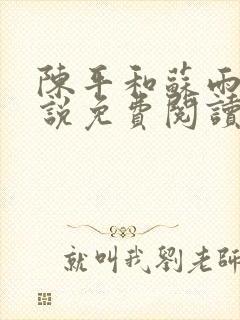 陳平和蘇雨
說免費閱讀
就叫我劉老師